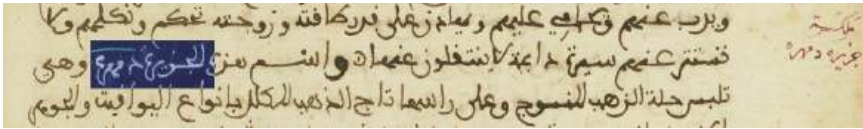 ويذب عنهم ويحامي عليهم وميادز على قدر كافته وزوجته تحكم وتكلمهم ولا
تستتر عنهم سيرة دايمة لا ينتقلون عنها واسم هذه الجزيرة دمهرة وهي
تلبس حلة الذهب المنسوج وعلى راسها تاج الذهب المكلل بانواع اليواقيت والجوهر
ملكة
جزيرة دمهرة